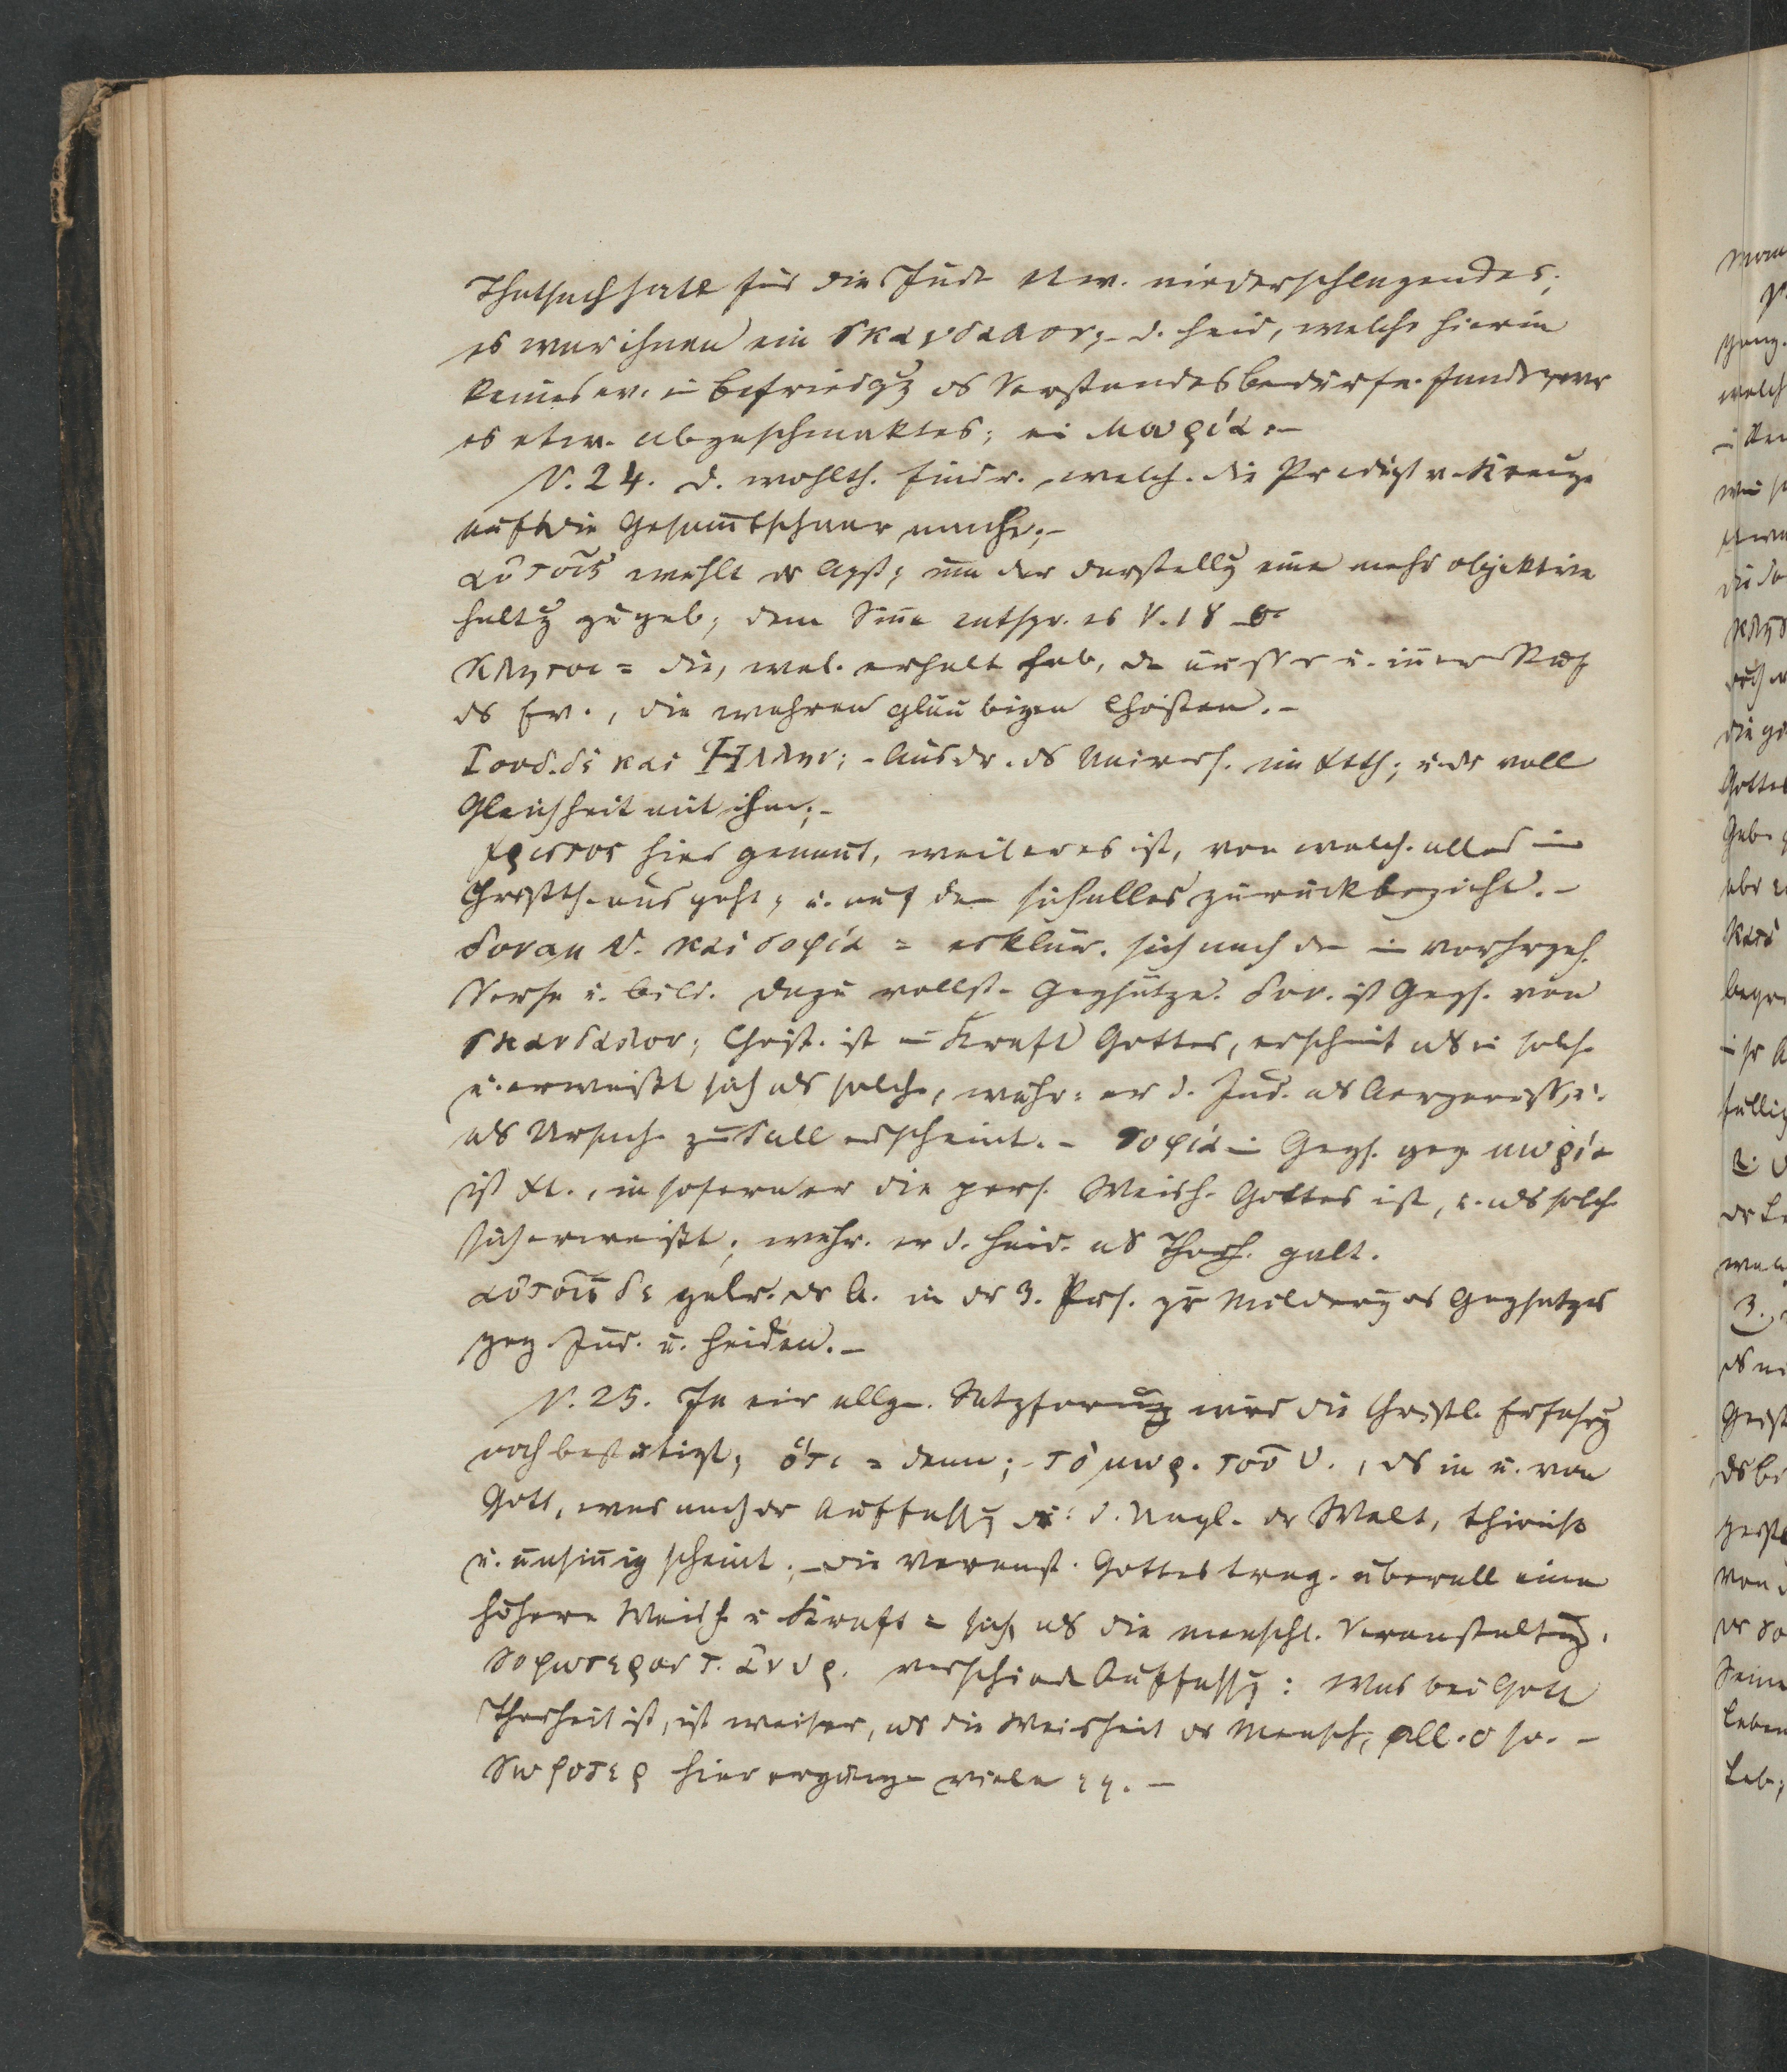 Thatsach hatte für die Jud etw. niederschlagendes;
es war ihnen ein σκανδαλον; - d. Heid, welche hierin
keines w. in Befriedigg ds Verstandesbedürfn. fand war
es etw. abgeschmaktes; ei μωρία. -
V. 24. d. wohlth. Eindr. welch. die Predigt v. Kreuze
auf die Gesam̅tschaar mache; -
αὐτοῖς wählt dr Apst; um der Darstellg eine mehr objektive
Haltg zu geb; dem Sin̅e entspr. es V. 18
Κλητοι = die, wel. erhalt hab, de äusse u. in̅er
ds Ev., die wahren gläubigen Christen. -
Ιουδ. δε και Ἑλλην; - Ausdr. ds Univers. im Xth; u. dr voll
Gleichheit mit ihm; -
Χριστος hier genan̅t, weil er es ist, von welch. alles im
Christth. ausgeht, u. auf den sich alles zurückbezieht. -
δυναμ θ. και σοφία = erklär. sich nach den im vorhrgeh.
Verse u. bild. dazu vollst. Gegsätze. δυν. ist Gegs. von
σκανδαλον; Christ. ist ein Kraft Gottes, erscheint als ei solch
u. erweißt sich als solche, währ. er d. Jud. als Aergerniss, u.
als Ursache zum Fall erscheint. - σοφία im Gegs. geg μωρία
ist Xt., in sofern er die pers. Weish. Gottes ist, u. als solch
sich erweißt, währ. er d. Heid. als Thorh. galt.
αὐτοῖς δε gebr. dr A. in dr 3. Pers. zur Milderung ds Gegsatzes
geg. Jud. u. Heiden. -
V. 25. In eir allge. Satzformung wird die Christl. Erfahrg
noch bestätigt; ὅτι = denn; - τὸ μωρ. τοῦ θ., ds in u. von
Gott, was nach dr Auffassg d. Ungl. dr Welt, thöricht
u. unsin̅ig scheint; - die Veranst. Gottes trag. überall eine
höhere Weish u Kraft in sich, als die menschl. Veranstaltung.
Σοφωτερον τ. ἀνθρ. verschiede Auffassg: Was bei Gott
Thorheit ist, ist weiser, als die Weisheit dr Mensch; all. so. -
hier ergänze viele